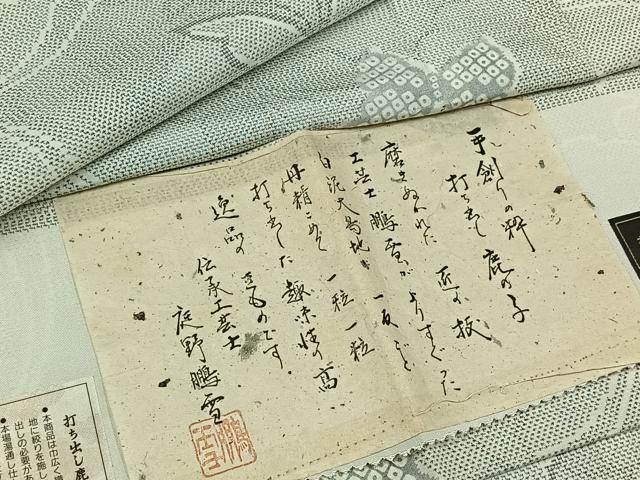 手創りの粋 鹿の子
打ち出し 匠の技
磨きぬかれた
工芸士 鵬雪が よりすぐった
白泥大島地に 一反ごと
丹精こめて 一粒一粒
打ち出した 趣味性の高
逸品の きものです。
伝承工芸士
庭野鵬雪
打ち出し鹿
●本商品は巾広く
地に絞りを施し
出しの必要があ
●本場湯通し仕